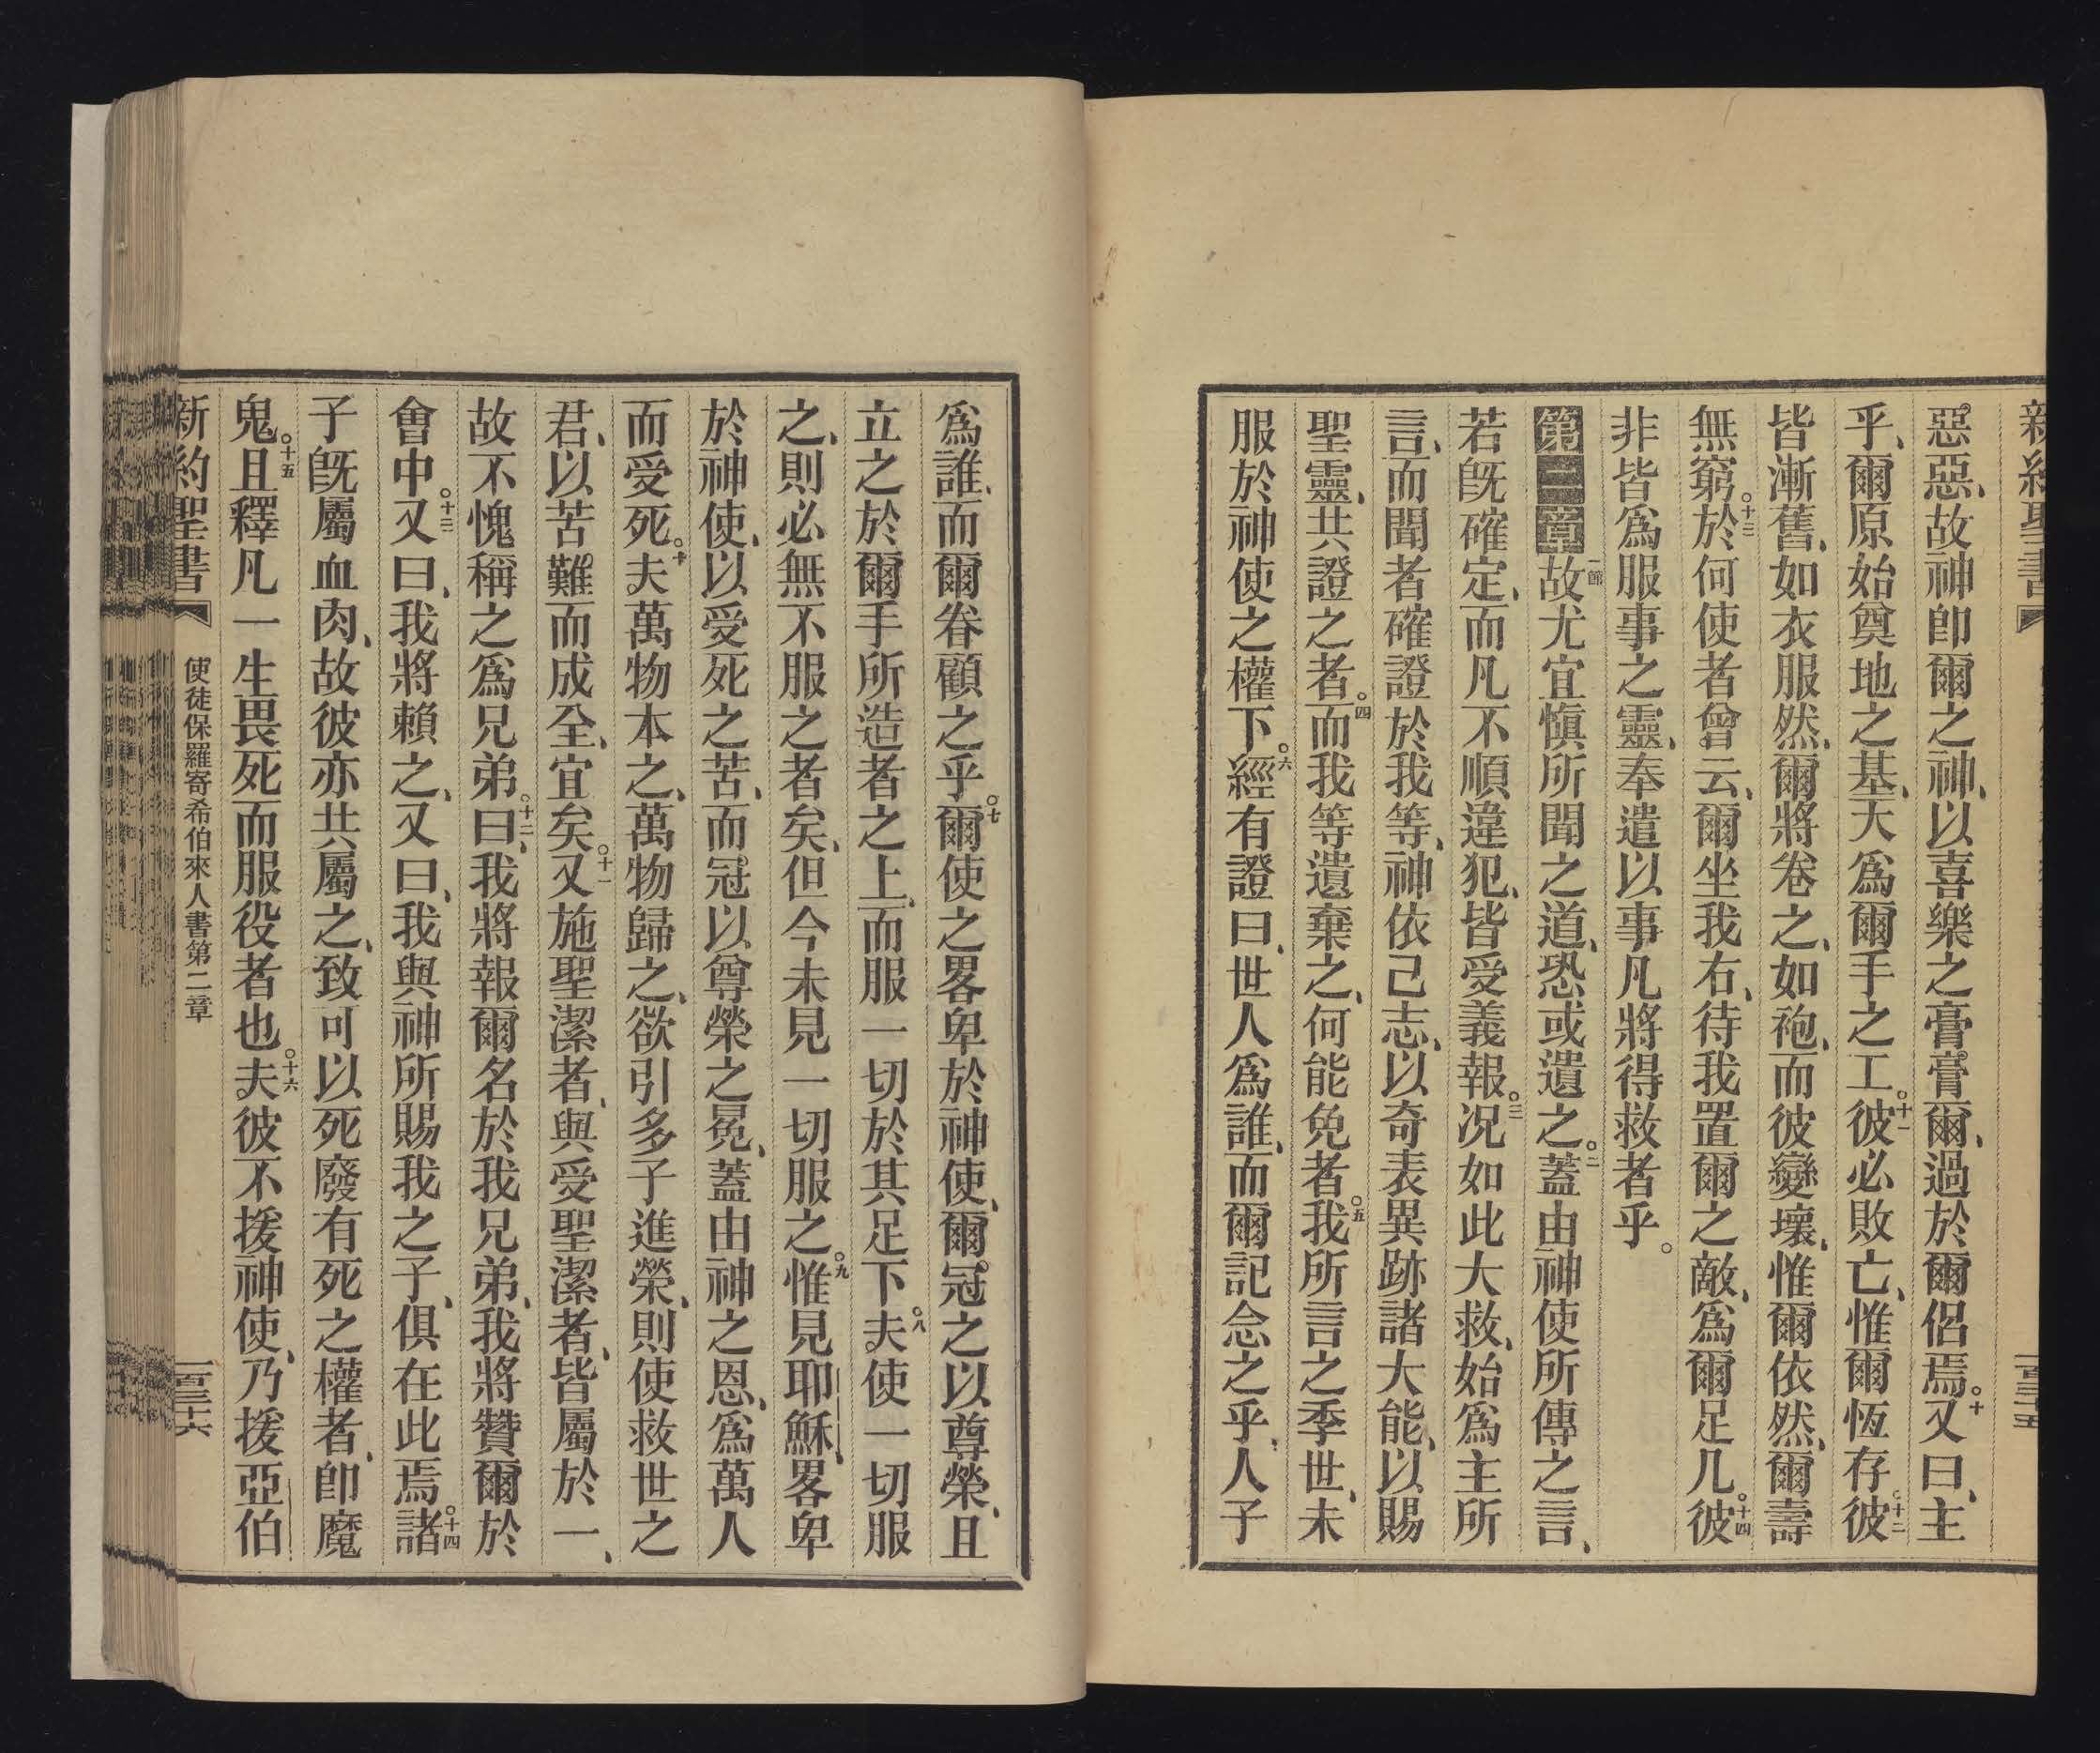 新約聖書
惡惡、故神卽爾之神、以喜樂之膏膏爾、過於爾侶焉。十又曰、主
乎、爾原始奠地之基、天爲爾手之工。十一彼必敗亡、惟爾恆存。十二彼
皆漸舊、如衣服然、爾將卷之、如袍、而彼變壞、惟爾依然、爾壽
無窮。十三於何使者曾云、爾坐我右、待我置爾之敵、爲爾足几。十四彼
非皆爲服事之靈、奉遣以事凡將得救者乎。
第二章一節故尤宜愼所聞之道、恐或遺之。二蓋由神使所傳之言、
若旣確定、而凡不順違犯、皆受義報。三况如此大救、始爲主所
言、而聞者確證於我等。神依己志、以奇表異跡諸大能、以賜
聖靈、共證之者。四而我等遺棄之、何能免者。五我所言之季世、未
服於神使之權下。六經有證曰、世人爲誰、而爾記念之乎、人子
爲誰、而爾眷顧之乎。七爾使之畧卑於神使、爾冠之以尊榮、且
立之於爾手所造者之上、而服一切於其足下。八夫使一切服
之、則必無不服之者矣、但今未見一切服之。九惟見耶穌、畧卑
於神使、以受死之苦、而冠以尊榮之冕、蓋由神之恩、爲萬人
而受死。十夫萬物本之、萬物歸之、欲引多子進榮、則使救世之
君、以苦難而成全、宜矣。十一又施聖潔者、與受聖潔者、皆屬於一、
故不愧稱之爲兄弟。十二曰、我將報爾名於我兄弟、我將贊爾於
會中。十三又曰、我將賴之、又曰、我與神所賜我之子、俱在此焉。十四諸
子旣屬血肉、故彼亦共屬之、致可以死廢有死之權者、卽魔
鬼。十五且釋凡一生畏死而服役者也。十六夫彼不援神使、乃援亞伯
新約聖書
使徒保羅寄希伯來人書第二章
一百三十六